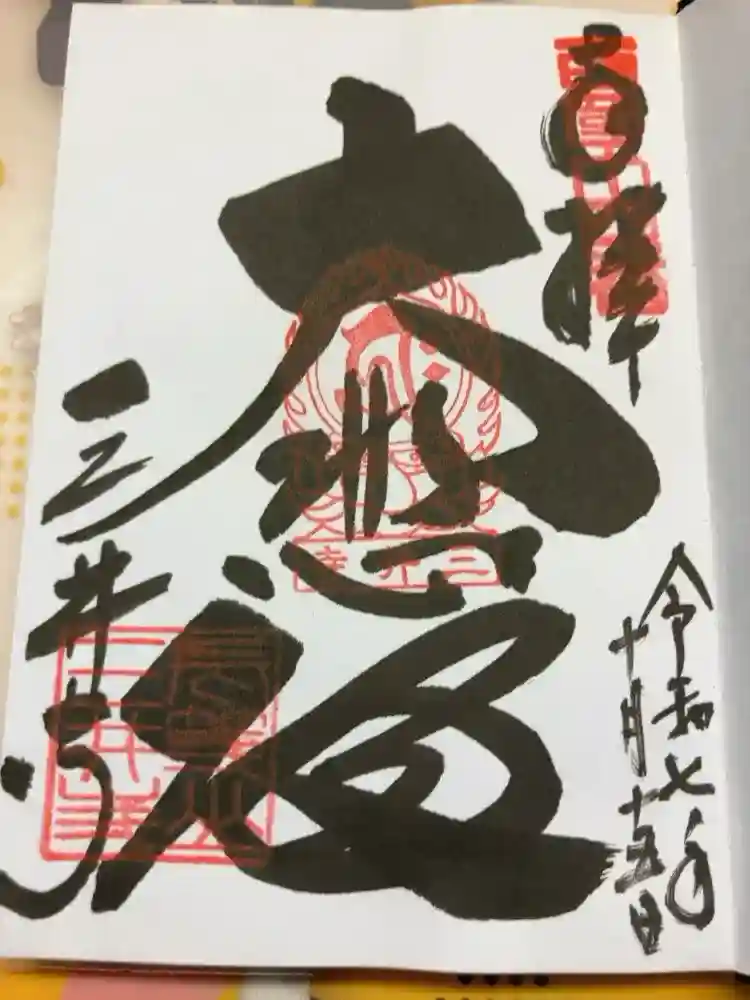 奉拝
令和七年
十月十五日
大悲殿
三井寺
三井寺